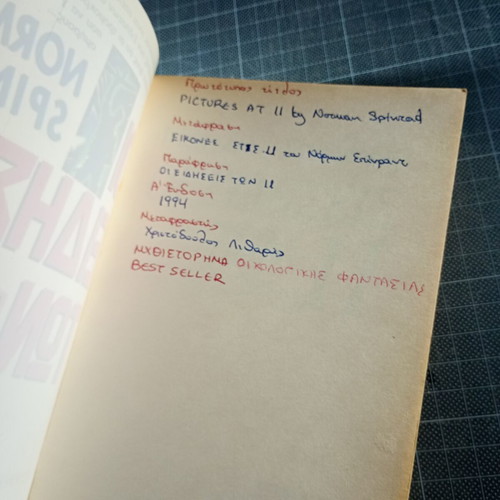 NORM
SPIN
Πρωτότυπος τίτλος
PICTURES AT 11 by Norman Spinrad
Μετάφραση
ΕΙΚΟΝΕΣ ΣΤΙΣ 11 του Νόρμαν Σπίνραντ
Παράφραση
ΟΙ ΕΙΔΗΣΕΙΣ ΤΩΝ 11
Α' Έκδοση
1994
Μεταφραστής
Χριστόδουλος Λιθαρής
ΜΥΘΙΣΤΟΡΗΜΑ ΟΙΚΟΛΟΓΙΚΗΣ ΦΑΝΤΑΣΙΑΣ
BEST SELLER